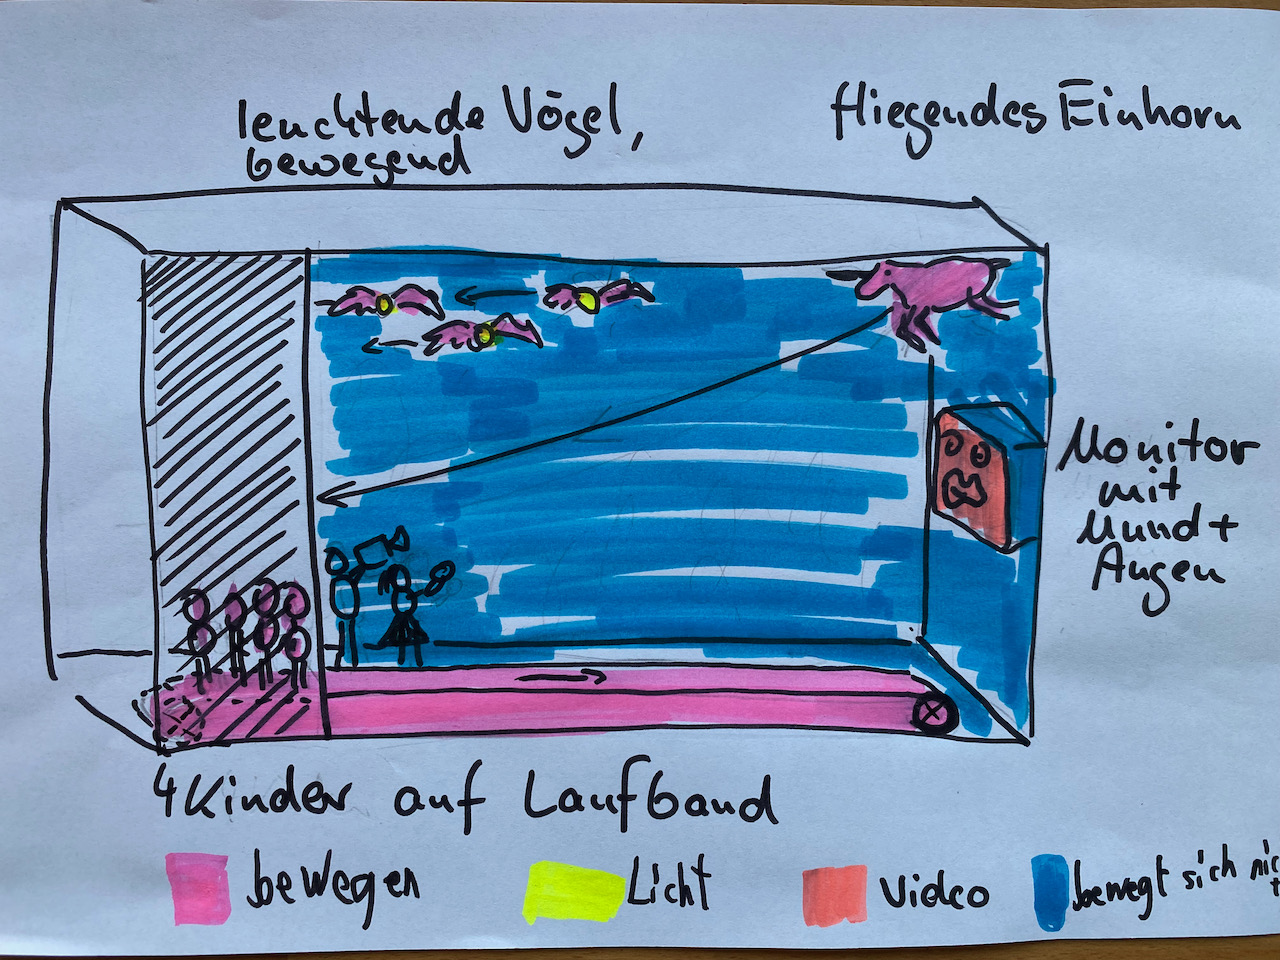 leuchtende Vögel,
bewegend
fliegendes Einhorn
Monitor
mit
Mund+
Augen
4 Kinder auf Laufband
bewegen
Licht
Video
bewegt sich nicht